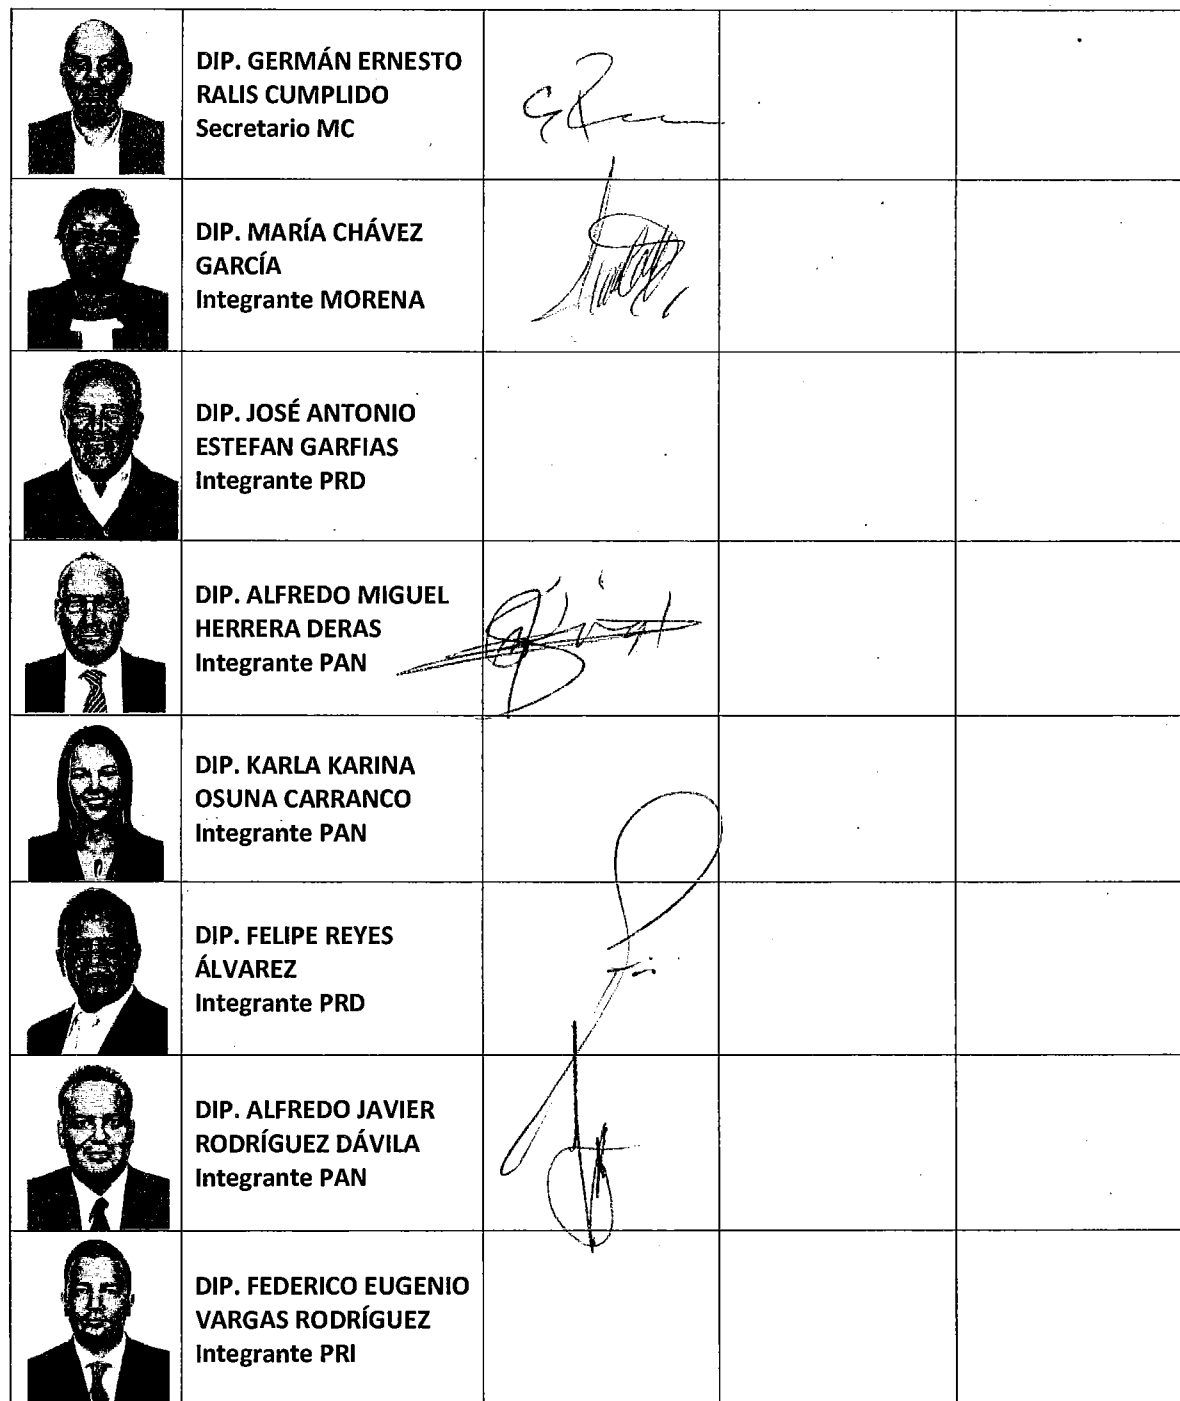 DIP. GERMÁN ERNESTO
RALIS CUMPLIDO
Secretario MC
DIP. MARÍA CHÁVEZ
GARCÍA
Integrante MORENA
DIP. JOSÉ ANTONIO
ESTEFAN GARFIAS
Integrante PRD
DIP. ALFREDO MIGUEL
HERRERA DERAS
Integrante PAN
DIP. KARLA KARINA
OSUNA CARRANCO
Integrante PAN
DIP. FELIPE REYES
ÁLVAREZ
Integrante PRD
DIP. ALFREDO JAVIER
RODRÍGUEZ DÁVILA
Integrante PAN
DIP. FEDERICO EUGENIO
VARGAS RODRÍGUEZ
Integrante PRI